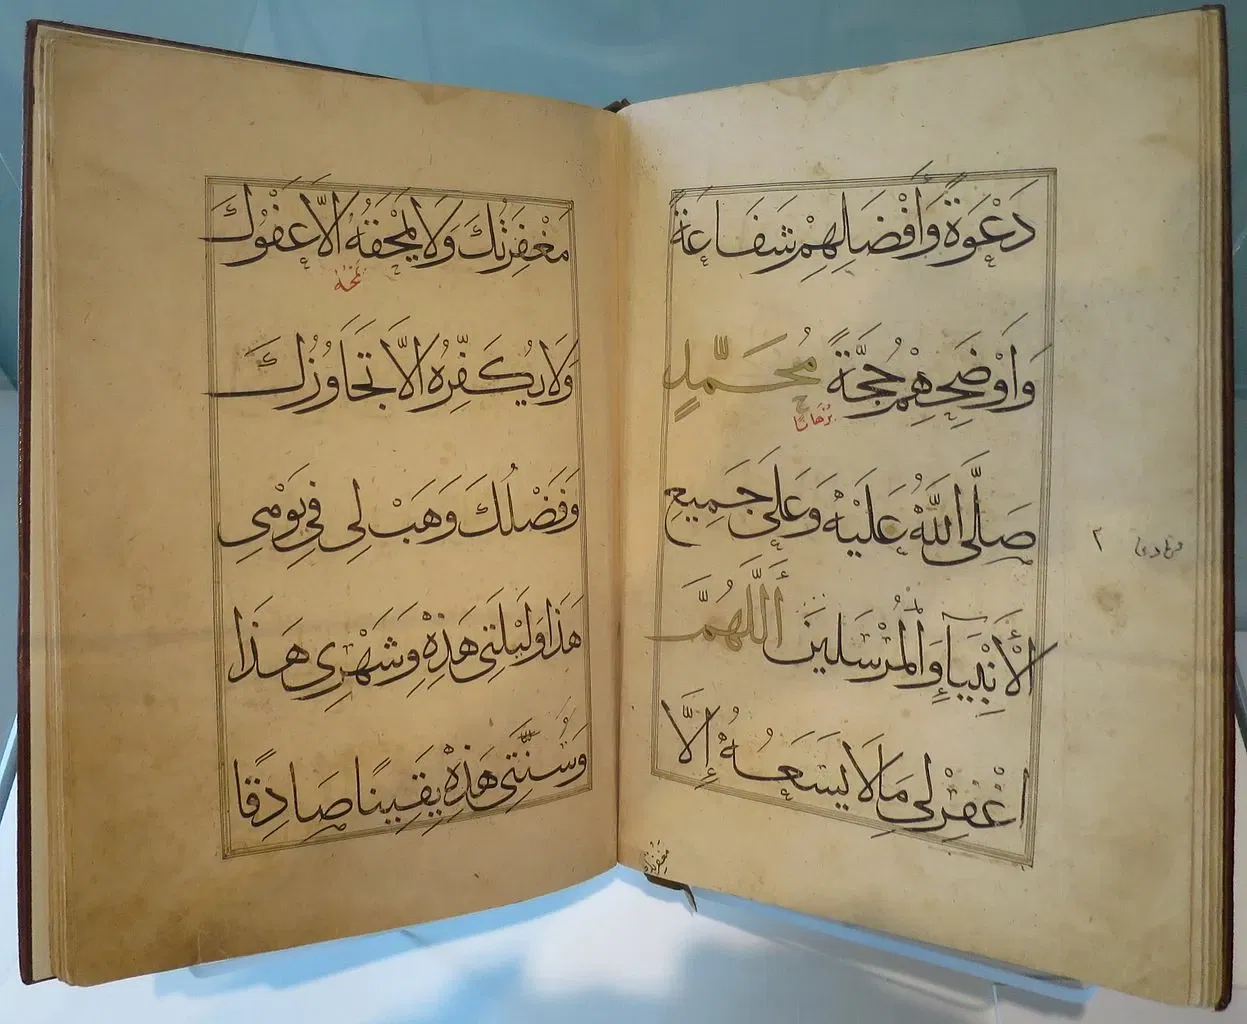 دَعْوَةً وَأَفْضَلِهِمْ شَفَاعَةً
وَاَوْضَحِهِمْ حُجَّةً مُحَمَّدٍ
بُرْهَانًا
صَلَّى اللَّهُ عَلَيْهِ وَعَلَى جَمِيعِ
الْأَنْبِيَآءِ وَالْمُرْسَلِينَ أَللَّهُمَّ
اغْفِرْ لِي مَا لَا يَسَعُهُ إِلَّا
مَغْفِرَتُكَ وَلَا يَمْحَقُهُ اِلَّا عَفْوُكَ
وَلَا يُكَفِّرُهُ اِلَّا تَجَاوُزُكَ
وَفَضْلُكَ وَهَبْ لِي فِي يَوْمِي
هَذَا وَلَيْلَتِي هَذِهْ وَشَهْرِي هَذَا
وَسَنَتِي هَذِهْ يَقِينًا صَادِقًا